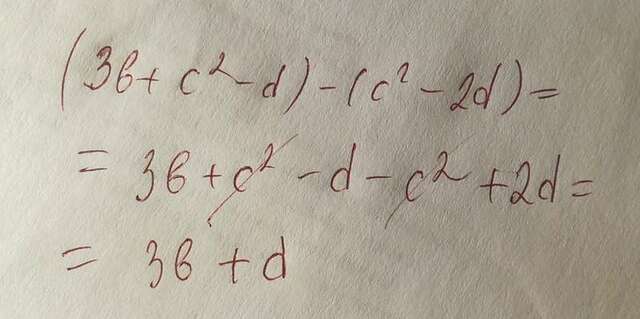 (3b + c² - d) - (c² - 2d) =
= 3b + c² - d - c² + 2d =
= 3b + d